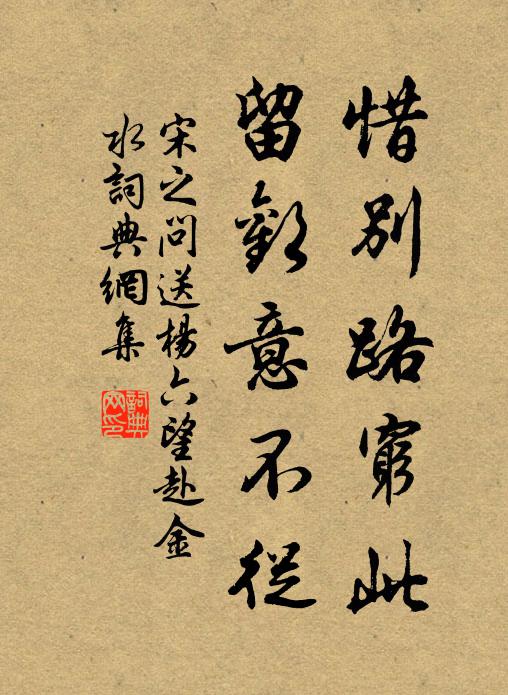 惜別路窮此
留歡意不從
宋之問送楊六望赴金
水詞典網集
詞典
网印